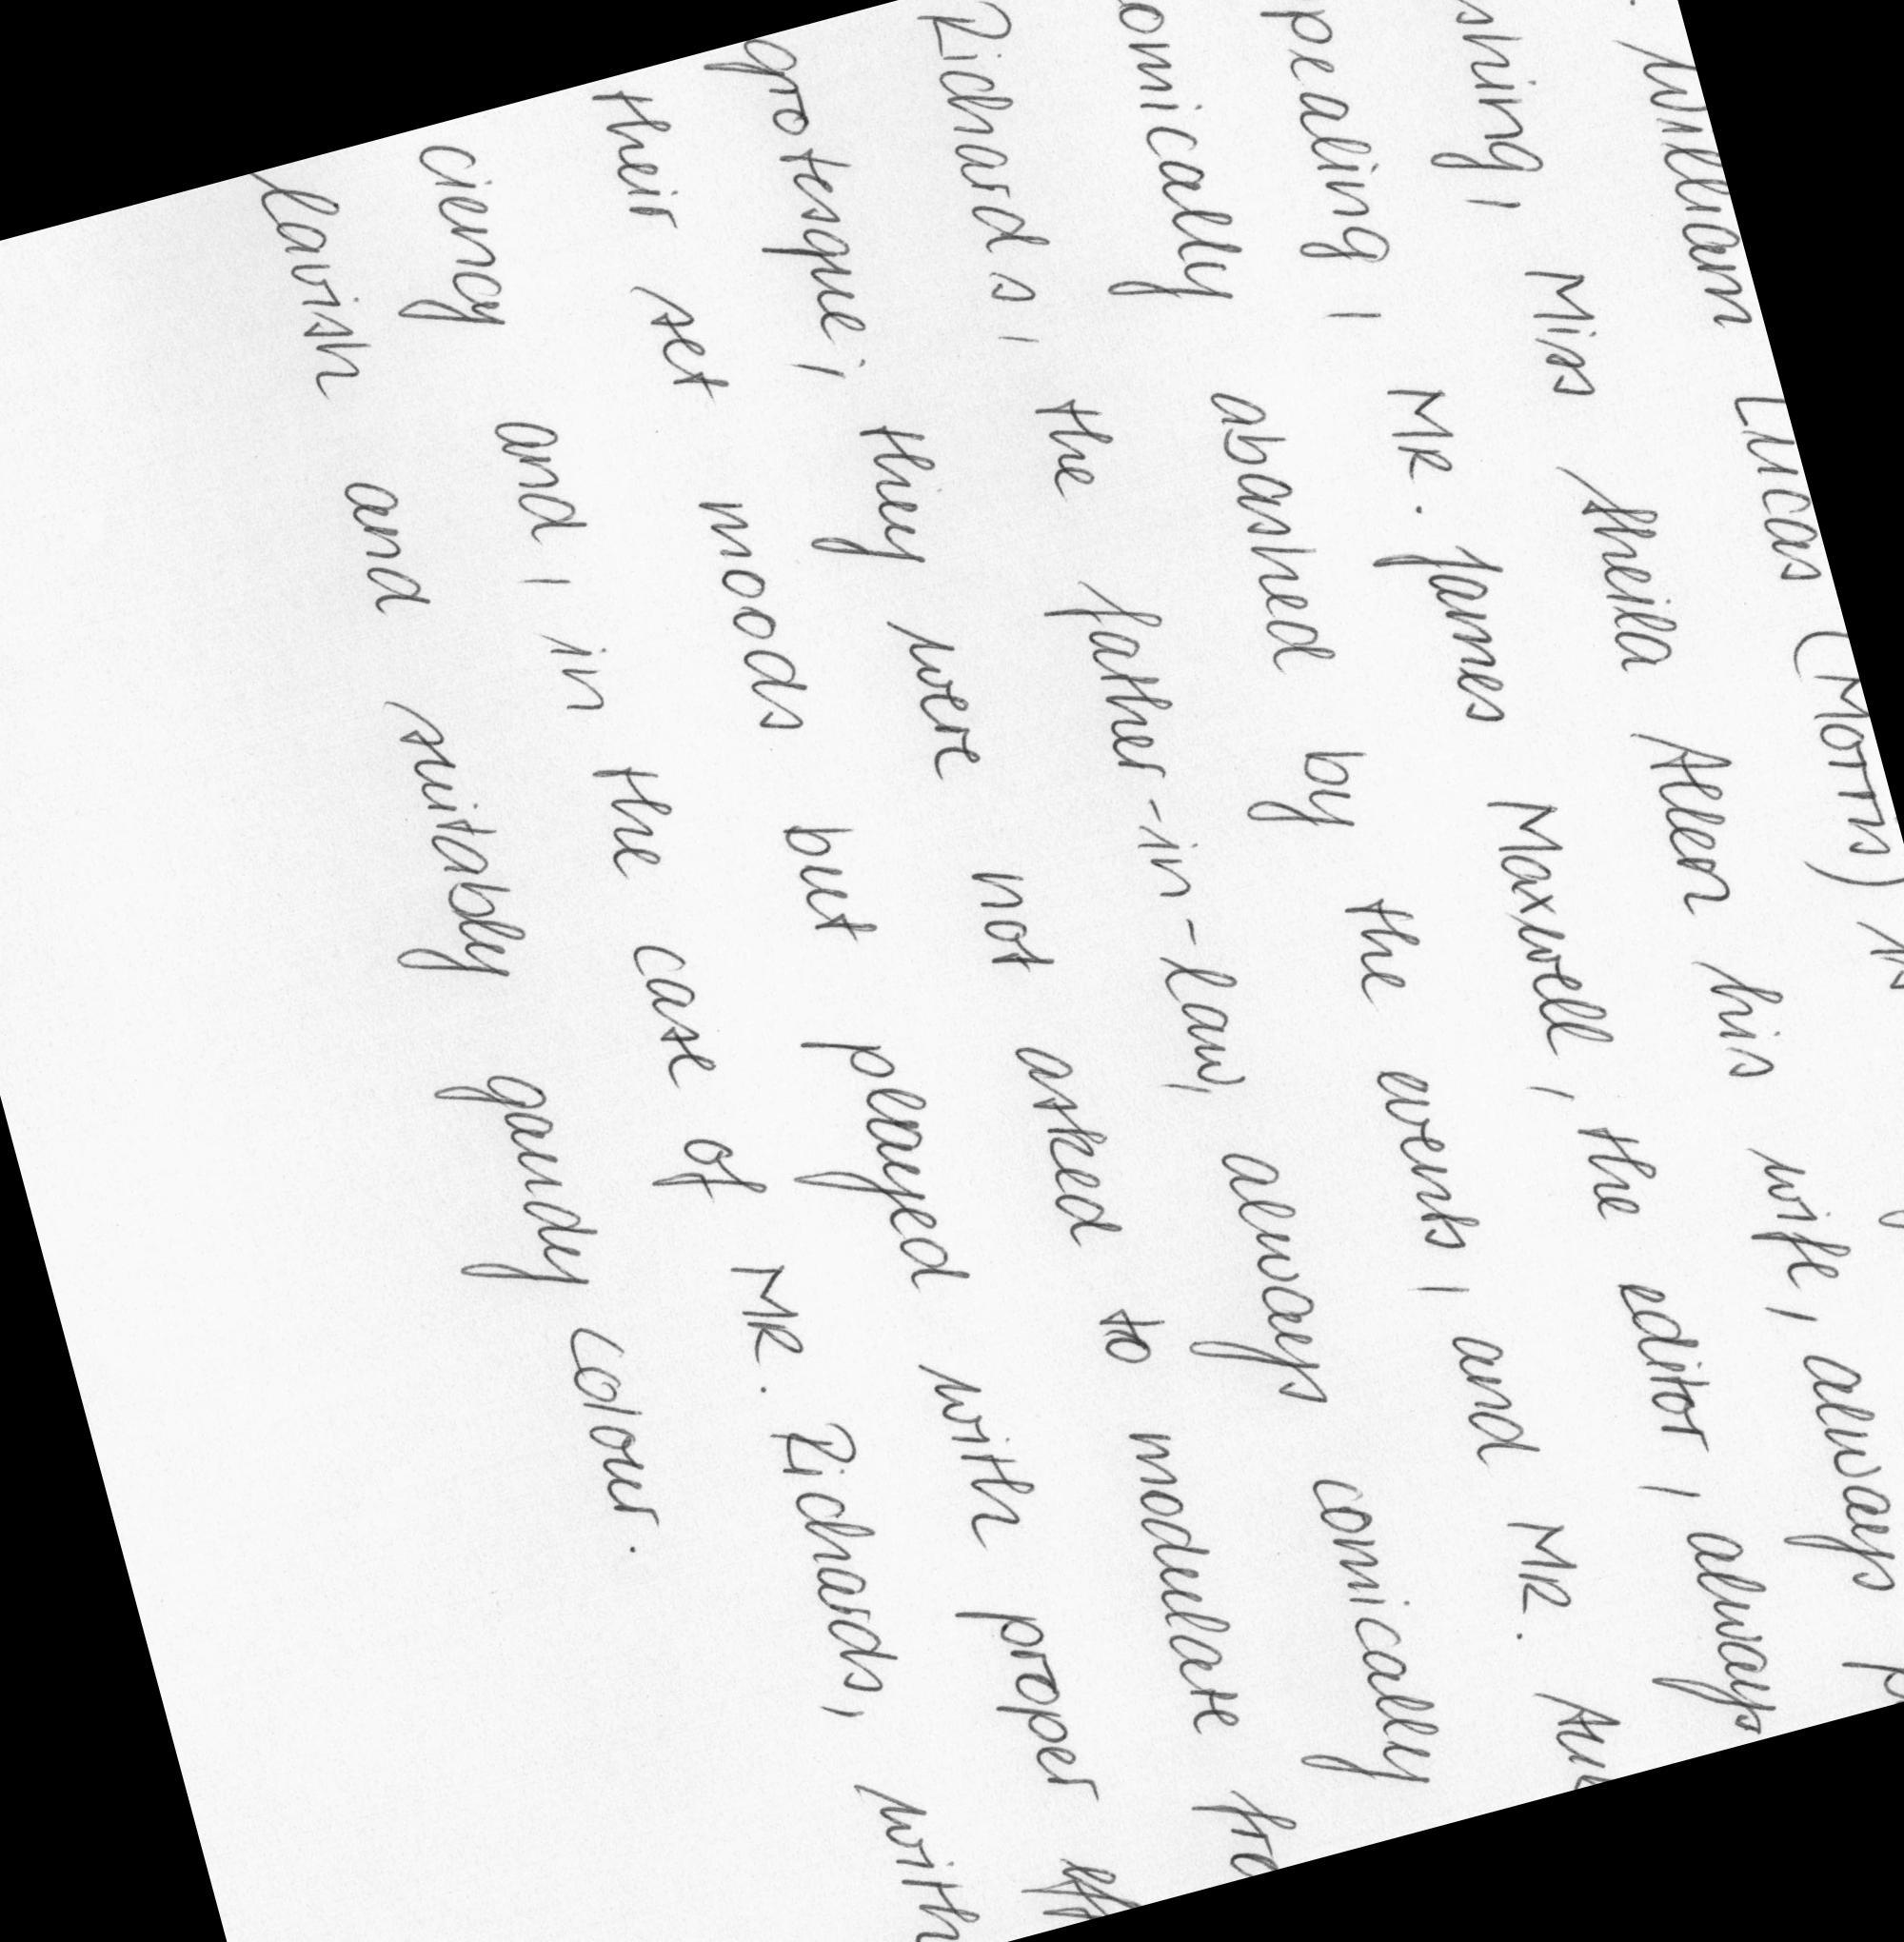 . William Lucas (Morris)
shing, Miss Sheila Allen his wife, always
pealing, Mr. James Maxwell, the editor, always
omically abashed by the events, and Mr.
Richards, the father-in-law, always comically
grotesque; they were not asked to modulate
their set moods but played with proper
ciency and, in the case of Mr. Richards, with
lavish and suitably gaudy colour.